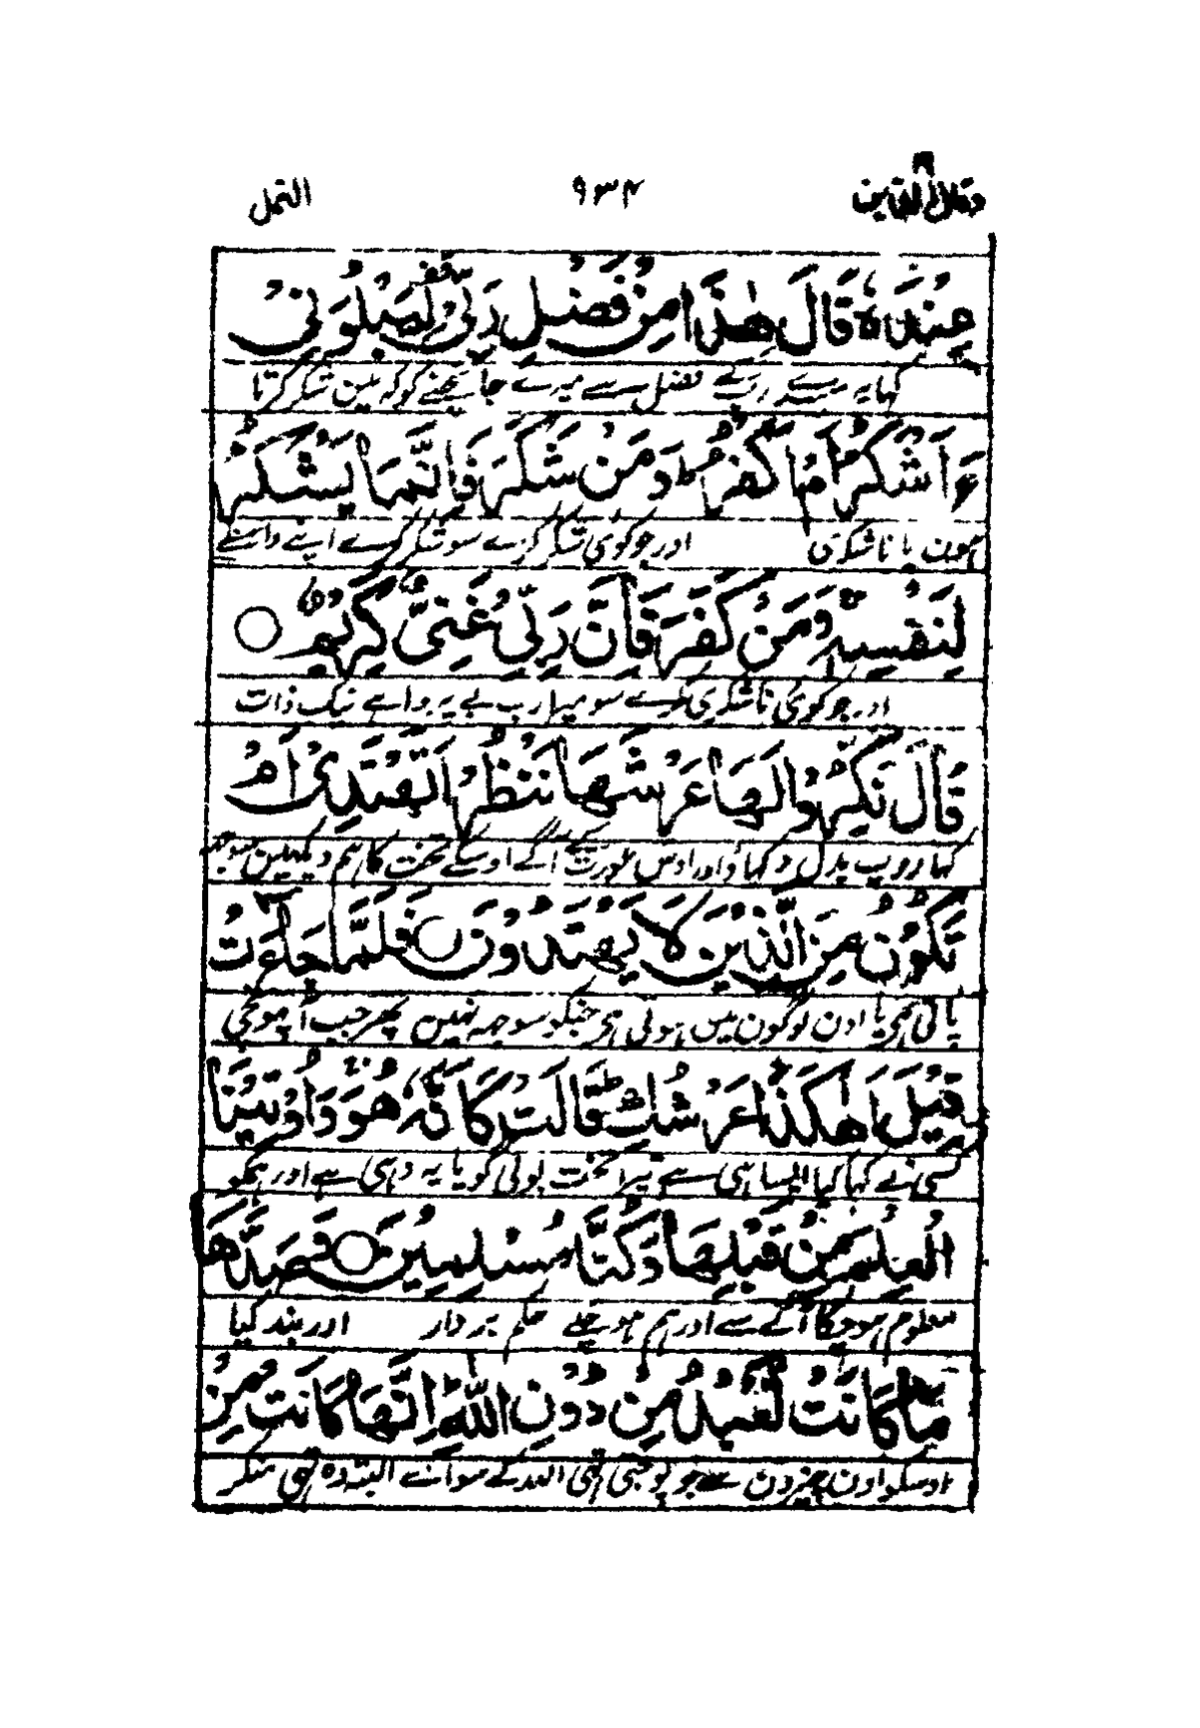 وقال الذين ۱۹ ۹۳۴ النمل
عِنْدَهٗ قَالَ هٰذَا مِنْ فَضْلِ رَبِّیْ لِیَبْلُوَنِیْ
کہا یہ میرے رب کے فضل سے میرے جانچنے کو کہ مین شکر کرتا
ءَاَشْكُرُ اَمْ اَكْفُرُ ط وَمَنْ شَكَرَ فَاِنَّمَا یَشْكُرُ
ہون یا ناشکری اور جو کوئی شکر کرے سو شکر کرے اپنے واسطے
لِنَفْسِهٖ وَمَنْ كَفَرَ فَاِنَّ رَبِّیْ غَنِیٌّ كَرِیْمٌ ○
اور جو کوئی ناشکری کرے سو میرا رب بے پروا ہے نیک ذات
قَالَ نَكِّرُوْا لَهَا عَرْشَهَا نَنْظُرْ اَتَهْتَدِیْ اَمْ
کہا روپ بدل دکھاؤ اوس عورت کے آگے اوسکے تخت کا ہم دیکھین سوجھ
تَكُوْنُ مِنَ الَّذِیْنَ لَا یَهْتَدُوْنَ ○ فَلَمَّا جَآءَتْ
پاتی ہی یا اون لوگون مین ہوتی ہی جنکو سوجھ نہین پھر جب آ پہونچی
قِیْلَ اَهٰكَذَا عَرْشُكِ ط قَالَتْ كَاَنَّهٗ هُوَ وَاُوْتِیْنَا
کسی نے کہا کیا ایسا ہی ہے تیرا تخت بولی گویا یہ وہی ہے اور ہمکو
الْعِلْمَ مِنْ قَبْلِهَا وَكُنَّا مُسْلِمِیْنَ ○ وَصَدَّهَا
معلوم ہو چکا آگے سے اور ہم ہو چکے حکم بردار اور بند کیا
مَا كَانَتْ تَّعْبُدُ مِنْ دُوْنِ اللّٰهِ ط اِنَّهَا كَانَتْ مِنْ
اوسکو اون چیزون سے جو پوجتی تھی اللہ کے سوائے البتہ وہ تھی منکر